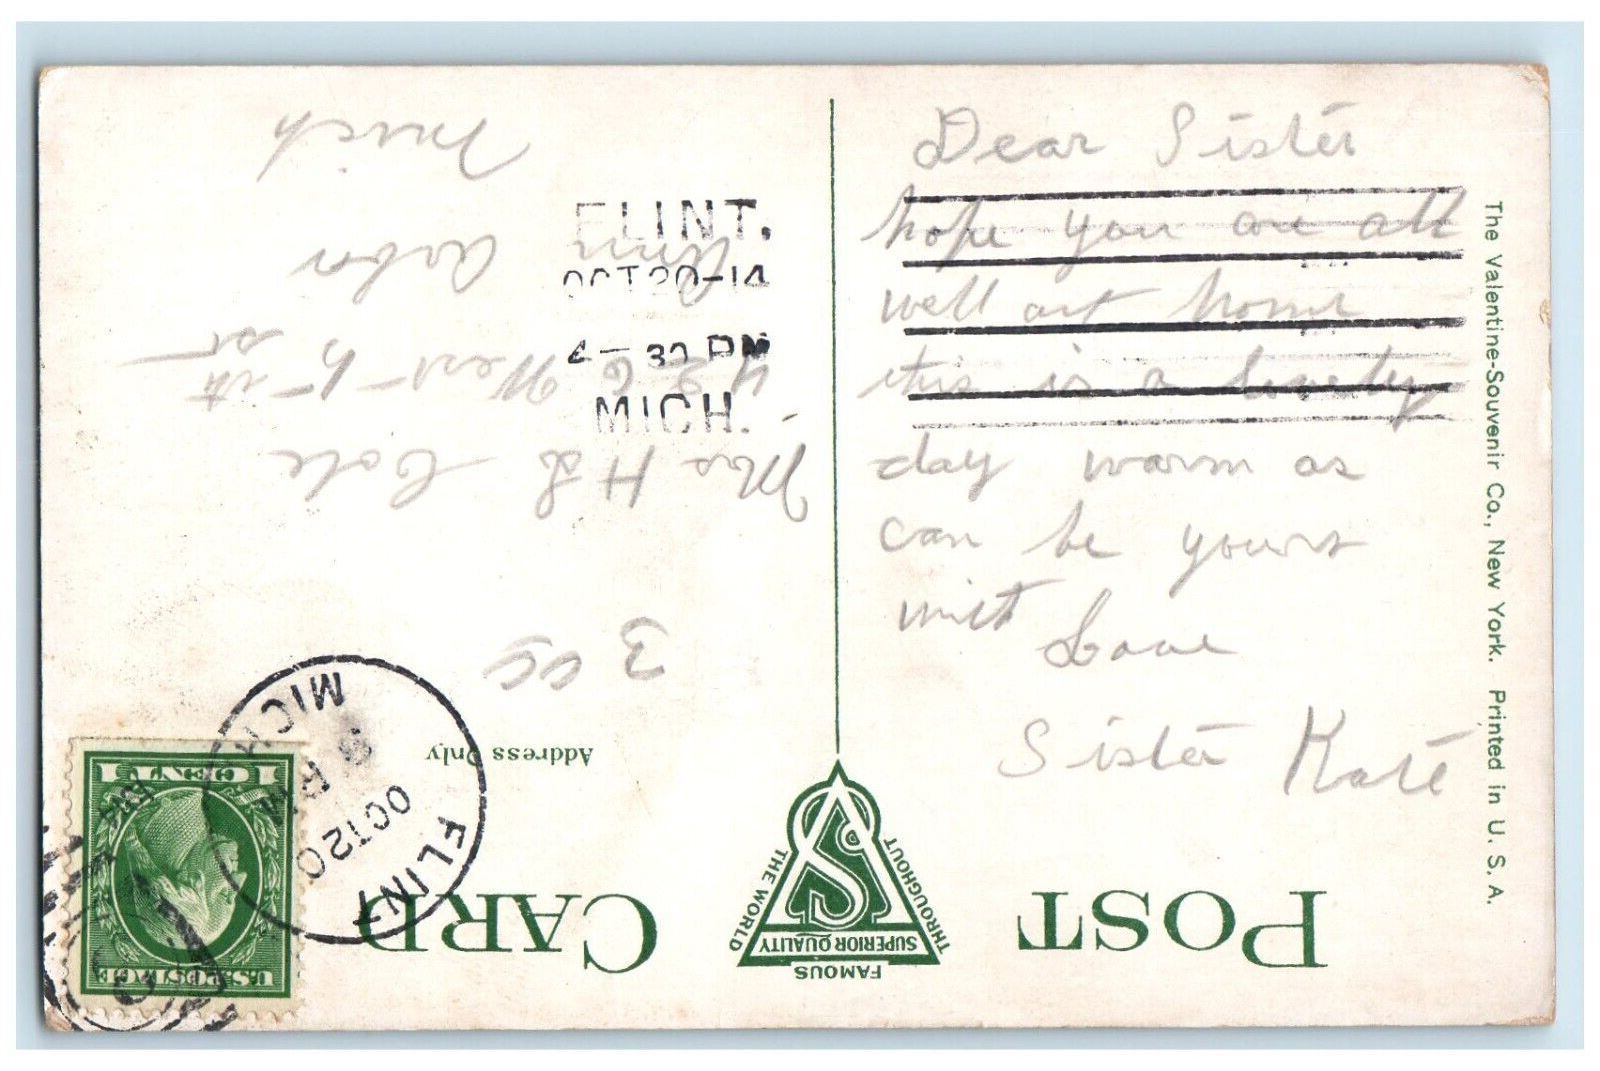 Dear Sister
hope you are all
well at home
this is a lovely
day warm as
can be yours
with Love
Sister Kate
The Valentine-Souvenir Co., New York. Printed in U. S. A.
FLINT.
OCT 20-14
4-30 PM
MICH.
POST CARD
FAMOUS
THROUGHOUT
THE WORLD
SUPERIOR QUALITY
Address Only
U.S. POSTAGE
1 CENT 1
FLINT
OCT 20
MICH
Mrs H L Cole
426 West 5-th st
Ann Arbor
Mich